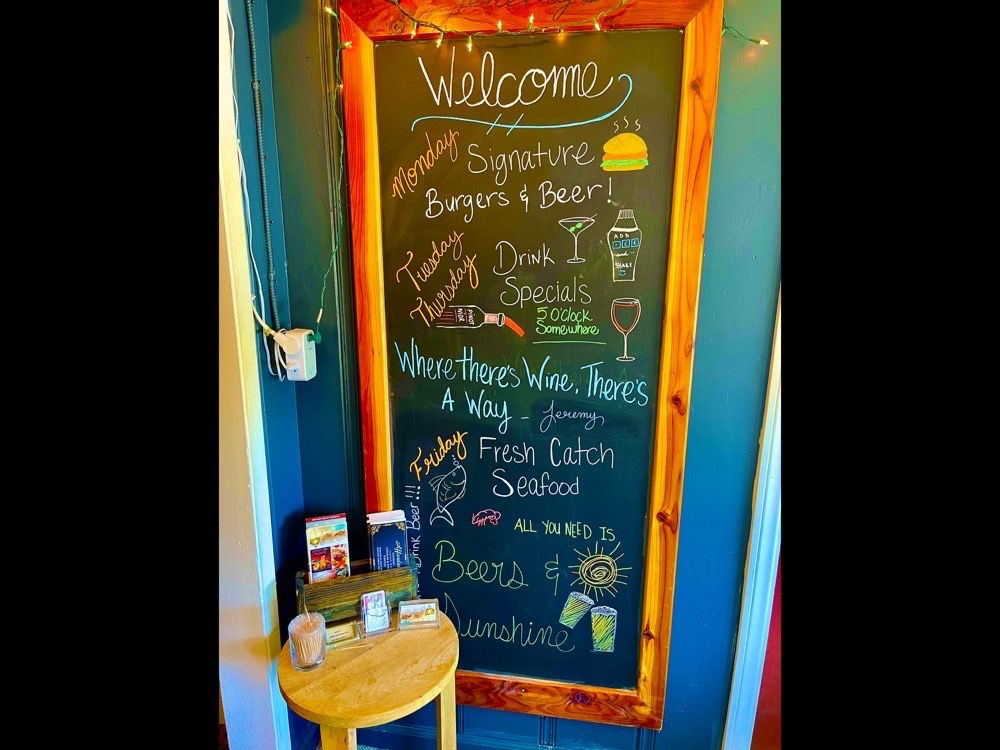 Welcome
Monday
Signature
Burgers & Beer!
Tuesday
Thursday
Drink
Specials
ADD
ICE
and
SHAKE
PINOT
NOIR
5 O'Clock
Somewhere
Where there's Wine, There's
A Way - Jeremy
Friday
Fresh Catch
Seafood
Drink Beer!!!
ALL YOU NEED IS
Beers &
Sunshine